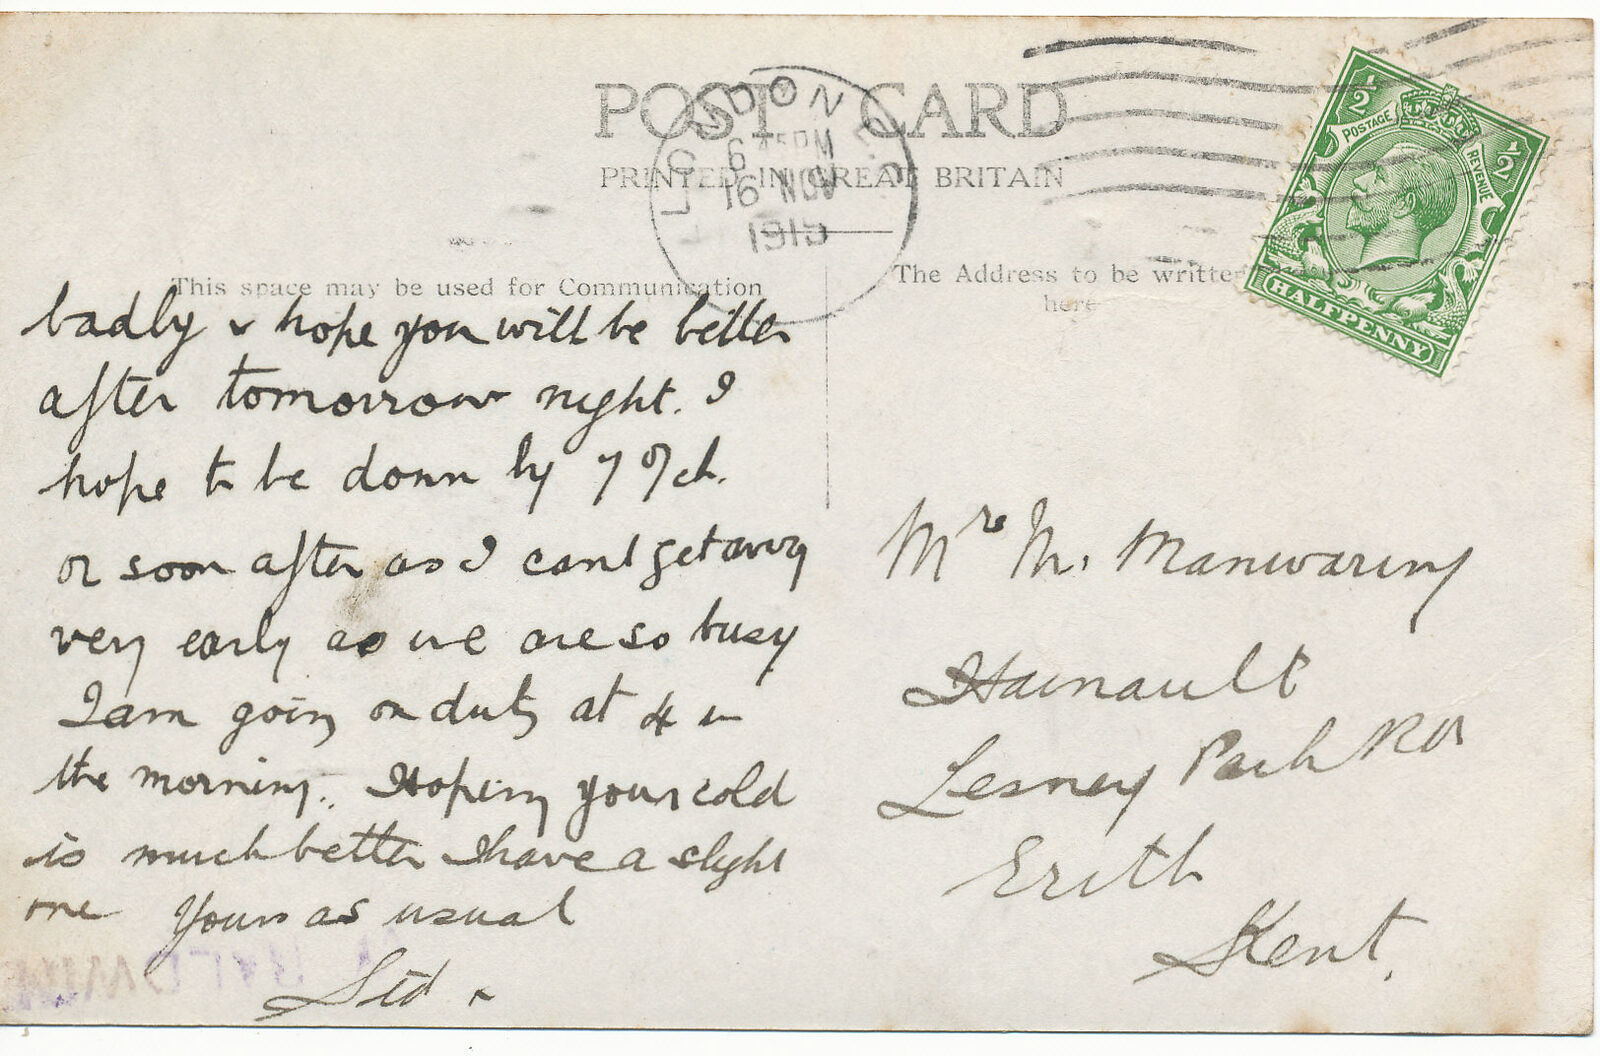 POST CARD
PRINTED IN GREAT BRITAIN
LONDON
6 45 PM
16 NOV
1915
½ ½
POSTAGE REVENUE
HALFPENNY
This space may be used for Communication
The Address to be written
here
badly & hope you will be better
after tomorrow night. I
hope to be down by 7 o/ck.
or soon after as I cant get away
very early as we are so busy
I am going on duty at 4 in
the morning. Hoping your cold
is much better I have a slight
one Yours as usual
Sid
Mrs M. Manwaring
Hainault
Lesney Park Rd
Erith
Kent.
BALDWIN